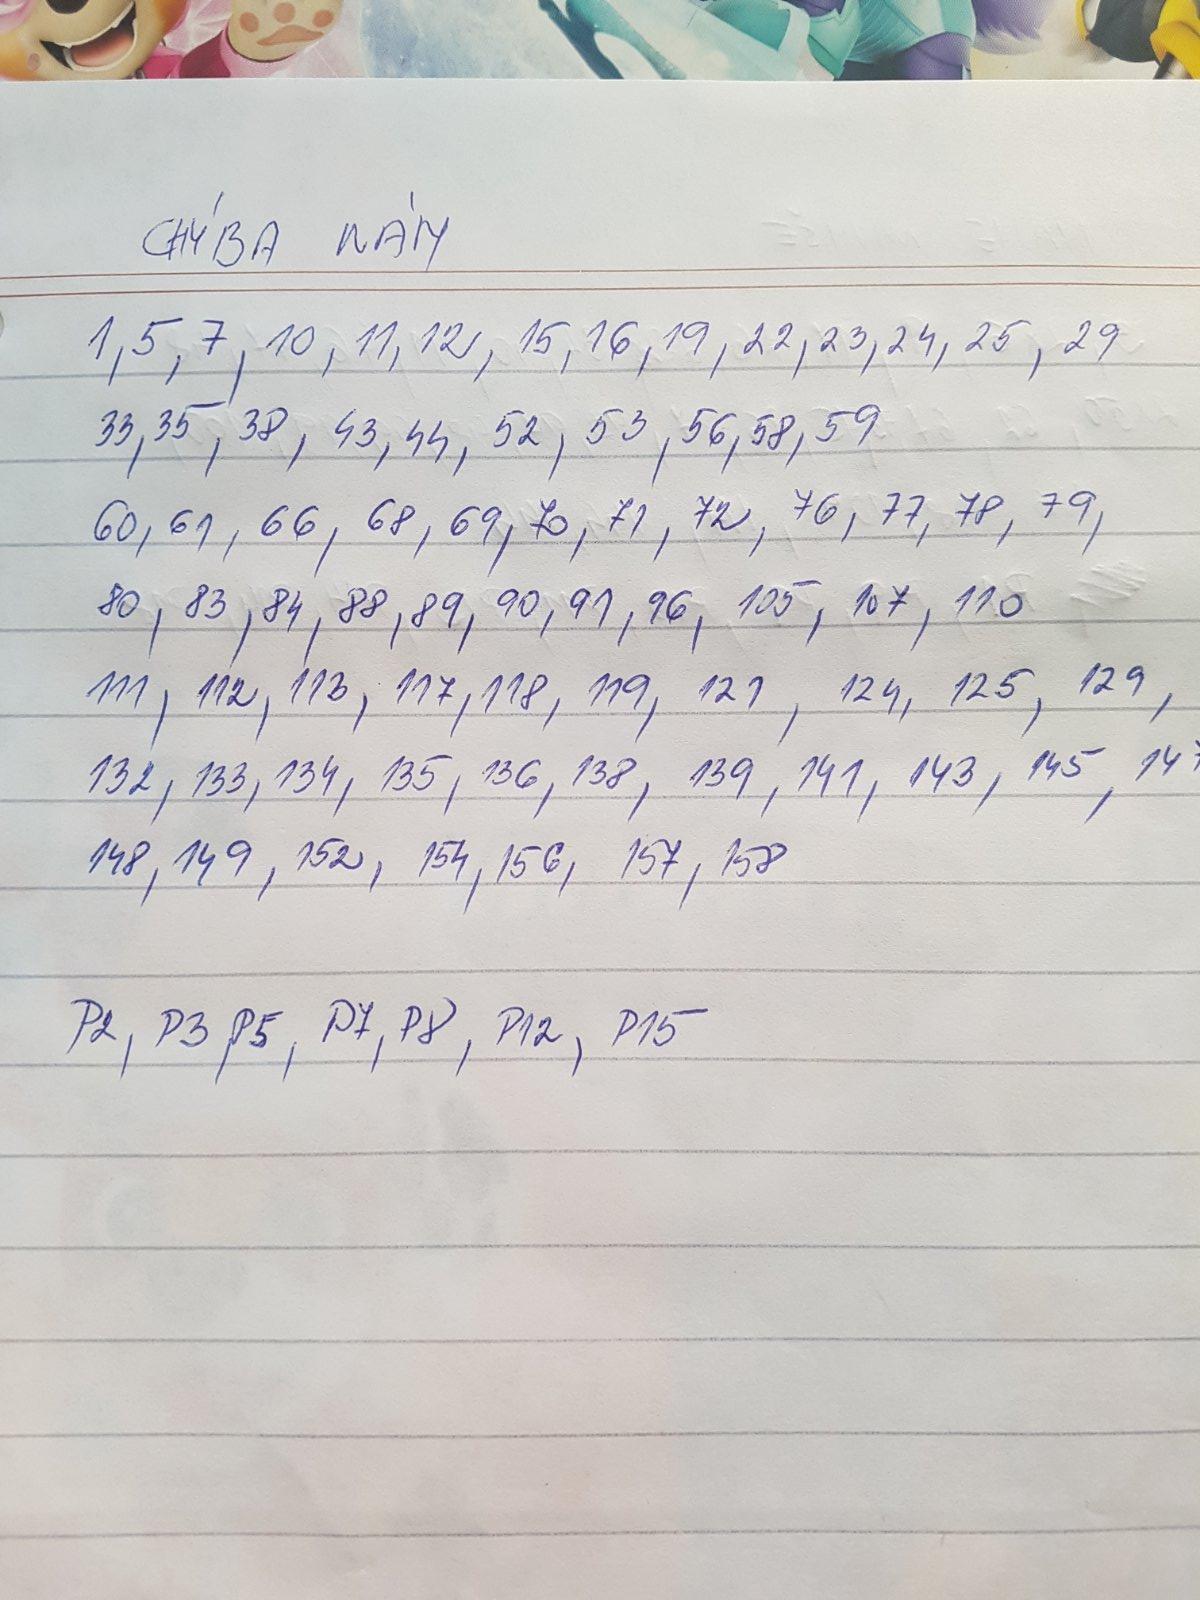 CHÝBA NÁM
1, 5, 7, 10, 11, 12, 15, 16, 19, 22, 23, 24, 25, 29
33, 35, 38, 43, 44, 52, 53, 56, 58, 59
60, 61, 66, 68, 69, 70, 71, 72, 76, 77, 78, 79,
80, 83, 84, 88, 89, 90, 91, 96, 105, 107, 110
111, 112, 113, 117, 118, 119, 121, 124, 125, 129,
132, 133, 134, 135, 136, 138, 139, 141, 143, 145, 147
148, 149, 152, 154, 156, 157, 158
P2, P3, P5, P7, P8, P12, P15